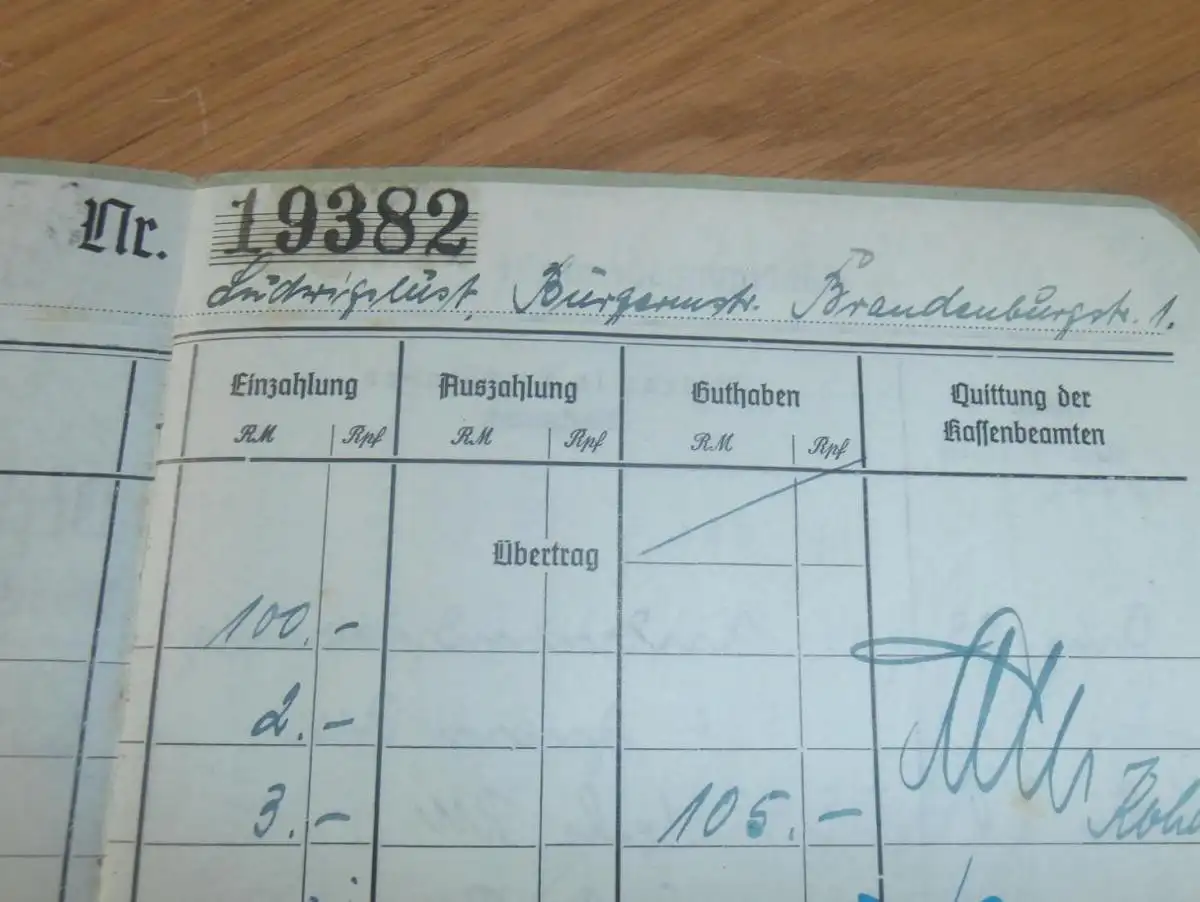 Nr. 19382
Ludwigslust, Bürgermstr. Brandenburgstr. 1.
Einzahlung Auszahlung Guthaben Quittung der Kassenbeamten
RM Rpf RM Rpf RM Rpf
Übertrag
100. -
2. -
3. - 105. -